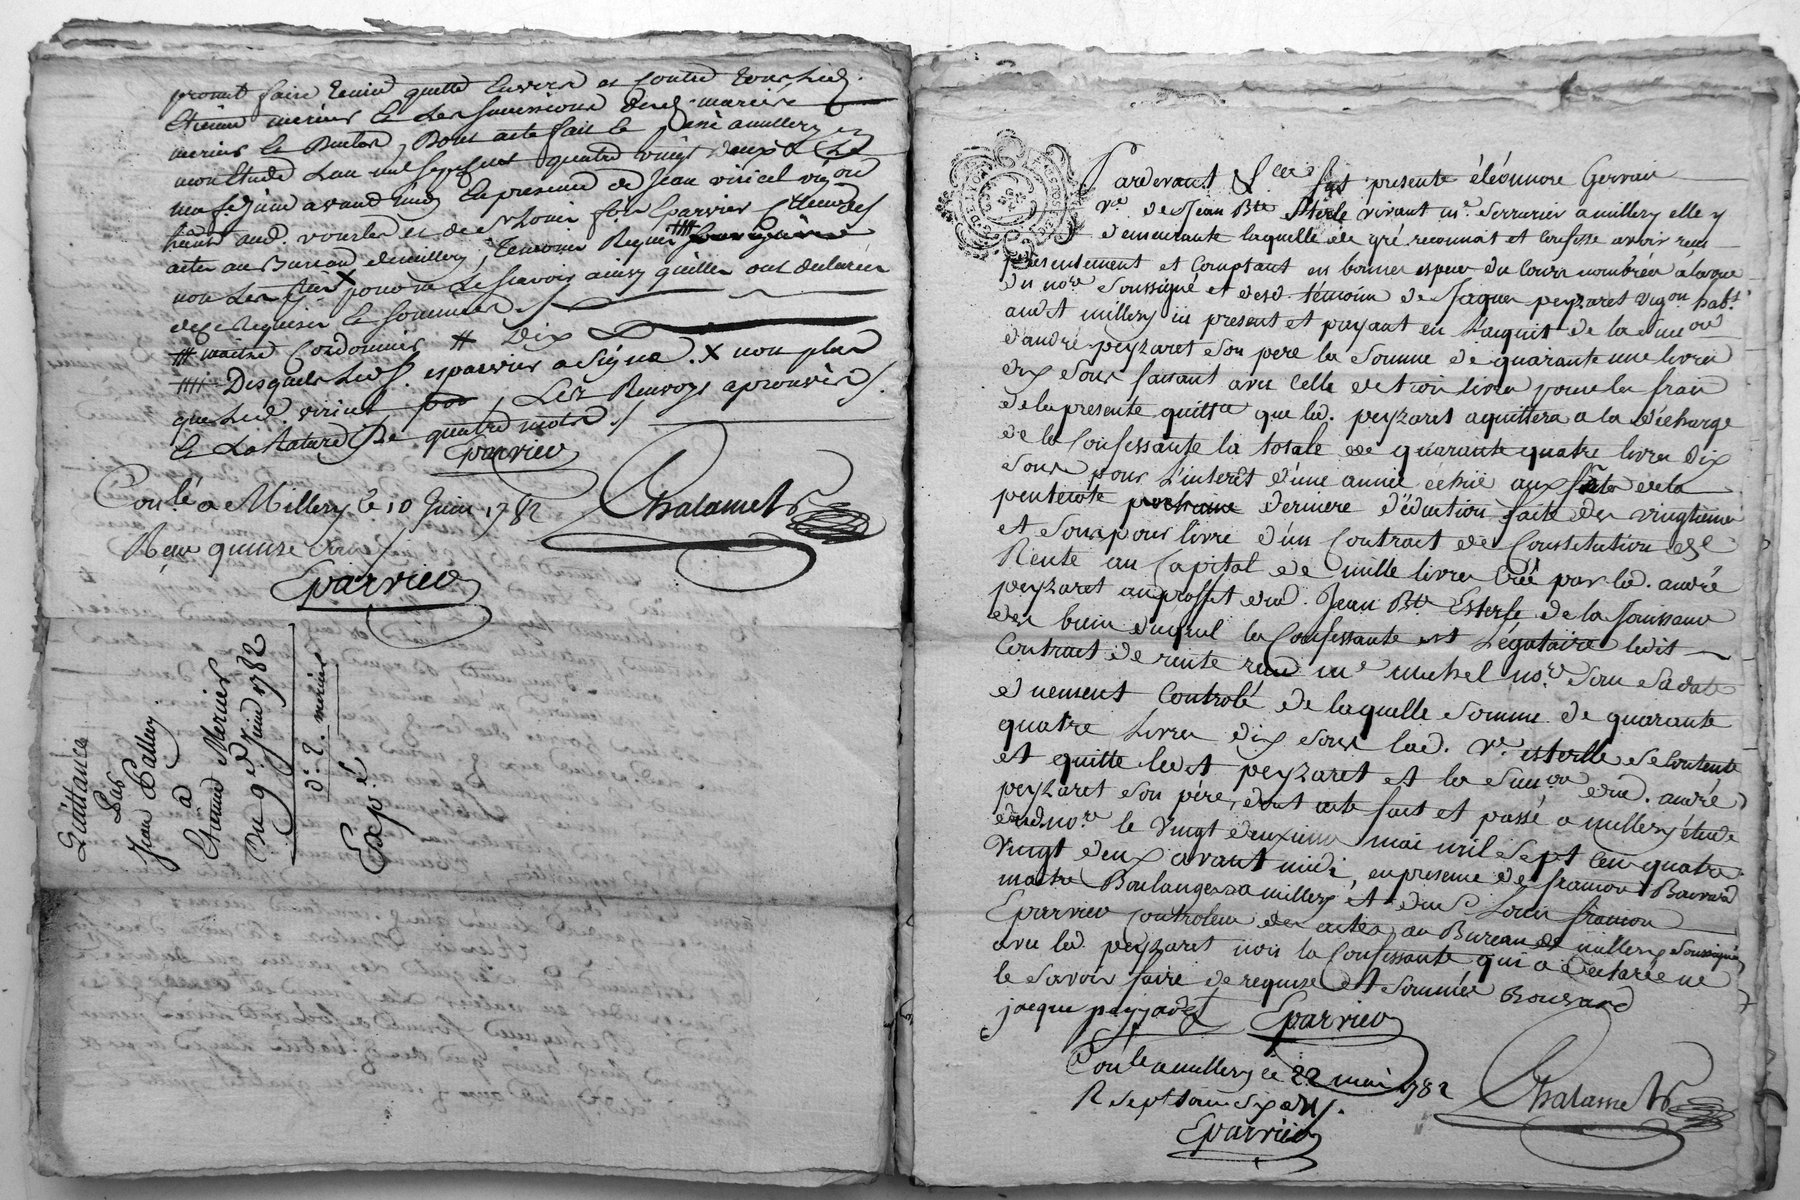 promet faire tenir quitte envers et contre tous led.
Etienne merier et les successions
merier le Buclos, Dont acte fait le passé a millery en
mon Etude L'an mil sept cent quatre vingt deux & Le
neuf Juin avant midy En presence de Jean viricel vigon
habit. aud. vourles et de s. Louis fois Eparvier
actes au Bureau de millery, temoins Requis
non Les pour ne Le scavoir ainsy qu'ils ont declaré
de ce Requis et sommés ./.
# maitre Cordonnier # Dix
Desquels Led. s. esparvier a signé . X non plus
que Led. viricel Les Renvoys aprouvés /.
Et La Rature De quatre mots ./
Eparvier
Con.lé a Millery le 10 Juin 1782
Reçu quinse sous /
Chalamel
Eparvier
Quittance
Par
Jean Pallery
à
Etienne Merier
Du 9e. Juin 1782
d.° 2. merier
Exp.é
Pardevant &.cea fut presente éléonnore Gervais
v.e de Jean B.te Sterle vivant m.e Serrurier a millery elle y
demeurante laquelle de gré reconnoit et confesse avoir reçu
presentement et comptant en bonnes especes du cours nombrées à la vue
du no.re soussigné et desd. témoins de Jaques peyzaret vigon hab.t
audit millery ici present et payant en l'aquit de la succ.on
d'andré peyzaret son pere la somme de quarante une livres
dix sous faisant avec celle de trois livres pour les frais
de la presente quitt.ce que led. peyzaret aquittera a la décharge
de la Confessante la totale de quarante quatre livres dix
sous pour l'interêt d'une année échüe aux fêtes de la
pentecote prochaine derniere déduction faite des vingtiemes
et sous pour livre d'un Contrait de Constitution de
Rente au Capital de mille livres créé par led. andré
peyzaret au proffit dud. Jean B.te Esterle de la Jouissance
des biens duquel la Confessante est Légataire ledit
Contrait de rente reçu m.e michel no.re sous sa date
duement Controlé de laquelle somme de quarante
quatre Livres dix sous lad. v.e esterle se Contente
et quitte ledit peyzaret et la succ.on dud. andré
peyzaret son père, dont acte fait et passé a millery étude
dud no.re le vingt deuxieme mai mil sept cen quatre
vingt deux avant midi, en presence de francois Bouvard
maitre Boulanger a millery et du s.r Louis francois
Eparvier Controleur des actes au Bureau de millery soussignés
avec led. peyzaret non la Confessante qui a déclaré ne
le savoir faire de requise et sommée Bouvard
jacque peyjaret Eparvier
Con.lé a millery le 22 mai 1782
R sept sous six d./.
Chalamel
Eparvier